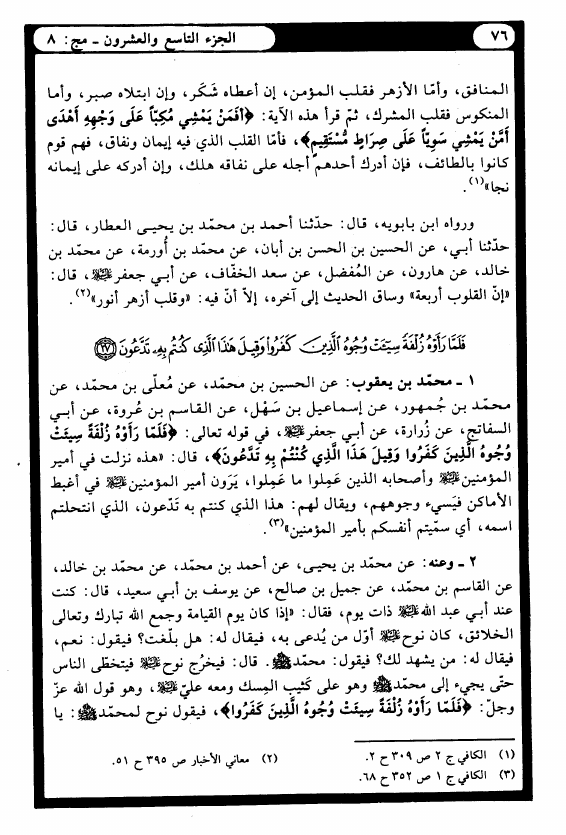 ٧٦
الجزء التاسع والعشرون ـ مج: ٨
المنافق، وأمّا الأزهر فقلب المؤمن، إن أعطاه شَكَر، وإن ابتلاه صبر، وأما
المنكوس فقلب المشرك، ثمّ قرأ هذه الآية: ﴿أفَمَنْ يَمْشِي مُكِبّاً عَلَى وَجْهِهِ أَهْدَى
أَمَّنْ يَمْشِي سَوِيّاً عَلَى صِرَاطٍ مُّسْتَقِيمٍ﴾، فأمّا القلب الذي فيه إيمان ونفاق، فهم قوم
كانوا بالطائف، فإن أدرك أحدهم أجله على نفاقه هلك، وإن أدركه على إيمانه
نجا»(١).
ورواه ابن بابويه، قال: حدّثنا أحمد بن محمّد بن يحيـى العطار، قال:
حدّثنا أبي، عن الحسين بن الحسن بن أبان، عن محمّد بن أُورمة، عن محمّد بن
خالد، عن هارون، عن المُفضل، عن سعد الخفّاف، عن أبي جعفر عليه السلام، قال:
«إنّ القلوب أربعة» وساق الحديث إلى آخره، إلاّ أنّ فيه: «وقلب أزهر أنور»(٢).
فَلَمَّا رَأَوْهُ زُلْفَةً سِيٓـَٔتْ وُجُوهُ ٱلَّذِينَ كَفَرُوا۟ وَقِيلَ هَٰذَا ٱلَّذِى كُنتُم بِهِۦ تَدَّعُونَ ﴿٢٧﴾
١ ـ محمّد بن يعقوب: عن الحسين بن محمّد، عن مُعلّى بن محمّد، عن
محمّد بن جُمهور، عن إسماعيل بن سَهْل، عن القاسم بن عُروة، عن أبي
السفاتج، عن زُرارة، عن أبي جعفر عليه السلام، في قوله تعالى: ﴿فَلَمَّا رَأَوْهُ زُلْفَةً سِيئَتْ
وُجُوهُ الَّذِينَ كَفَرُوا وَقِيلَ هَذَا الَّذِي كُنْتُمْ بِهِ تَدَّعُونَ﴾، قال: «هذه نزلت في أمير
المؤمنين عليه السلام وأصحابه الذين عَمِلوا ما عَمِلوا، يَرَون أمير المؤمنين عليه السلام في أغبط
الأماكن فيَسيء وجوههم، ويقال لهم: هذا الذي كنتم به تَدّعون، الذي انتحلتم
اسمه، أي سمّيتم أنفسكم بأمير المؤمنين»(٣).
٢ ـ وعنه: عن محمّد بن يحيـى، عن أحمد بن محمّد، عن محمّد بن خالد،
عن القاسم بن محمّد، عن جميل بن صالح، عن يوسف بن أبي سعيد، قال: كنت
عند أبي عبد الله عليه السلام ذات يوم، فقال: «إذا كان يوم القيامة وجمع الله تبارك وتعالى
الخلائق، كان نوح عليه السلام أوّل من يُدعى به، فيقال له: هل بلّغت؟ فيقول: نعم،
فيقال له: من يشهد لك؟ فيقول: محمّد ﷺ. قال: فيخرُج نوح عليه السلام فيتخطّى الناس
حتّى يجيء إلى محمّد ﷺ وهو على كَثيب المِسك ومعه عليّ عليه السلام، وهو قول الله عزّ
وجلّ: ﴿فَلَمَّا رَأَوْهُ زُلْفَةً سِيئَتْ وُجُوهُ الَّذِينَ كَفَرُوا﴾، فيقول نوح لمحمّد ﷺ: يا
(١) الكافي ج ٢ ص ٣٠٩ ح ٢.
(٢) معاني الأخبار ص ٣٩٥ ح ٥١.
(٣) الكافي ج ١ ص ٣٥٢ ح ٦٨.